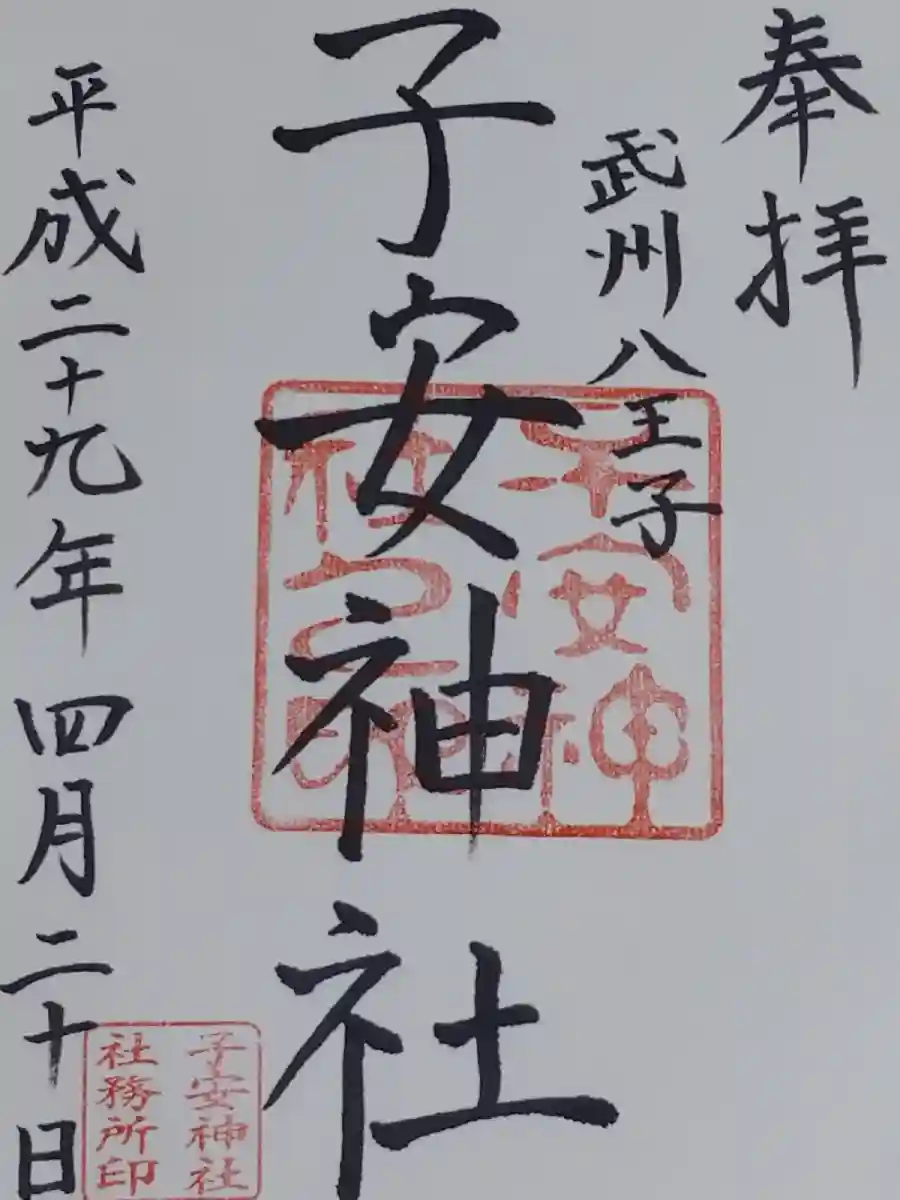 奉拝
武州八王子
子安神社
子安神
社之印
平成二十九年四月二十日
子安神社
社務所印